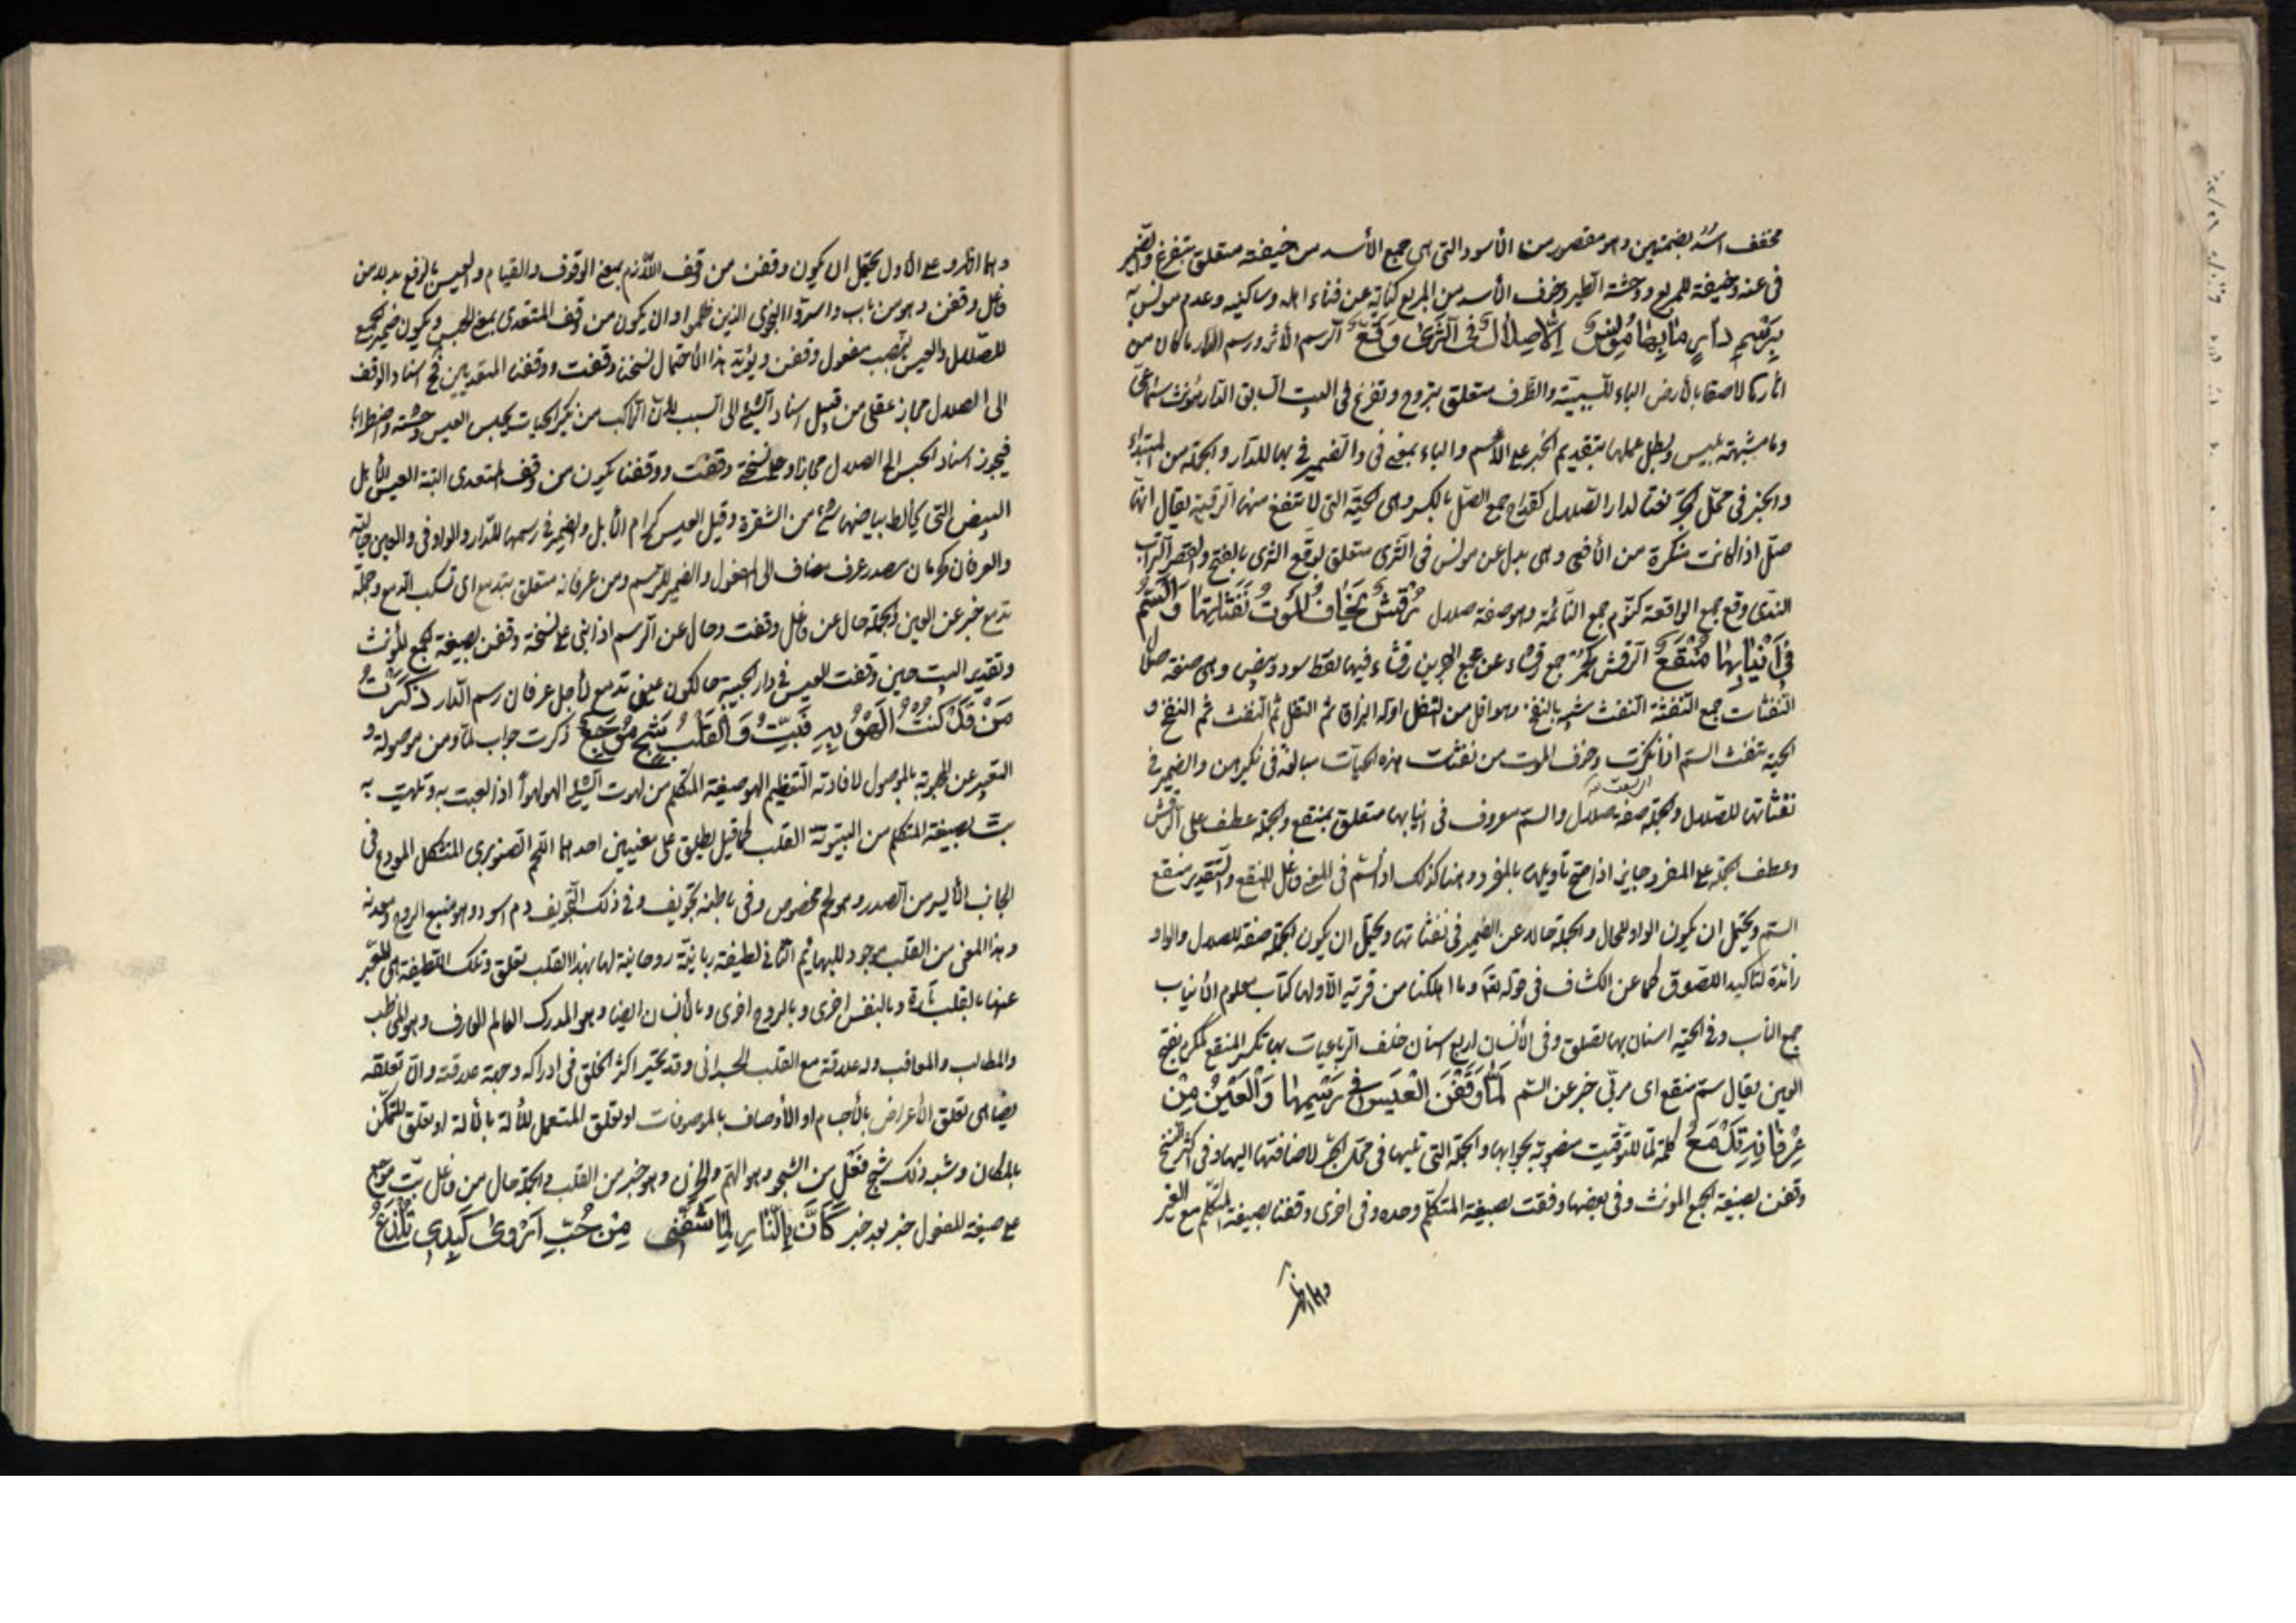 مخفف اسد بضمتين وهو مقصور من الأسود التى هى جمع الأسد من خيفته متعلق بتفزع والضمير
فى عنه وخيفته للمربع ووحشة الطير وخوف الأسد من المربع كناية عن فناء اهله وساكنيه وعدم مونس به
بِرَسْمِ دَارٍ مَا بِهَا مُونِسٌ اِلَّا صِلَالٌ فِى الثَّرَى وُقَّعٌ الرسم الأثر ورسم الدار ما كان من
اثارها لاصقا بالأرض الباء للسببية والظرف متعلق بتروح وتفزع فى البيت السابق الدار مؤنث سماعى
وما مشبهة بليس وبطل عملها بتقديم الخبر على الاسم والباء بمعنى فى والضمير فى بها للدار والجملة من المبتداء
والخبر فى محل الجر نعتا لدار الصلال كقداح جمع الصل بالكسر وهى الحية التى لا تنفع منها الرقية يقال انها
صل اذا كانت منكرة من الأفعى وهى بدل عن مونس فى الثرى متعلق بوقع الثرى بالفتح والقصر التراب
الندى وقع جمع الواقعة كنوم جمع النائمة وهو صفة صلال رُقْشٌ يَخَافُ المَوْتُ نَفَثَاتِهَا وَالسَّمُّ
فِى اَنْيَابِهَا مُنْقَعٌ الرقش كحمر جمع رقشاء فيها نقط سود وبيض وهى صفة صلال
النفثات جمع النفثة النفث شبيه بالنفخ وهو اقل من التفل اوله البزاق ثم التفل ثم النفث ثم النفخ و
الحية تنفث السم اذا نكزت وخوف الموت من نفثات هذه الحيات مبالغة فى نكيرهن والضمير فى
نفثاتها للصلال والجملة صفة صلال والسم معروف فى انيابها متعلق بمنقع والجملة عطف على الرقش
وعطف الجملة على المفرد جايز اذا صح تاويلها بالمفرد وهنا كذلك اذ السم فى المعنى فاعل للمنقع والتقدير منقع
السم ويحتمل ان يكون الواو للحال والجملة حالا عن الضمير فى نفثاتها ويحتمل ان يكون الجملة صفة للصلال والواو
زائدة لتاكيد اللصوق كما عن الكشاف فى قوله تعه وما اهلكنا من قرية الا ولها كتاب معلوم الأنياب
جمع الناب وفى الحية اسنان بها تصلق وفى الأنسان اربع اسنان خلف الرباعيات بها تكسر المنقع كمكرم بفتح
العين يقال سم منقع اى مربى خبر عن السم لَمَّا وَقَفْنَ الْعِيسُ فِى رَسْمِهَا وَالْعَيْنُ مِنْ
عِرْفَانِهِ تَدْمَعُ كلمة لما للتوقيت منصوبة بجوابها والجملة التى تليها فى محل الجر لاضافتها اليها وفى اكثر النسخ
وقفن بصيغة الجمع المونث وفى بعضها وقفت بصيغة المتكلم وحده وفى اخرى وقفنا بصيغة المتكلم مع الغير
وهما اظهر
وهما اظهر وعلى الأول يحتمل ان يكون وقفن من وقف اللازم بمعنى الوقوف والقيام والعيس بالرفع بدلا من
فاعل وقفن وهو من باب واسروا النجوى الذين ظلموا وان يكون من وقف المتعدى بمعنى الحبس ويكون ضمير الجمع
للصلال والعيس بنصب مفعول وقفن ويؤيد هذا الأحتمال نسخة وقفت ووقفنا المتعديين اسناد الوقف
الى الصلال مجاز عقلى من قبيل اسناد الشئ الى السبب الحيات يحبس العيس وحشة واضطرابا
فيجوز اسناد الحبس الى الصلال مجازا وعلى نسخة وقفت ووقفنا يكون من وقف المتعدى البتة العيس الأبل
البيض التى يخالط بياضها شئ من الشقرة وقيل العيس كرام الأبل والضمير فى رسمها للدار والواو فى والعين حالية
والعرفان كحرمان مصدر عرف مضاف الى المفعول والضمير للرسم ومن عرفانه متعلق بتدمع اى تسكب الدمع وجملة
تدمع خبر عن العين والجملة حال عن فاعل وقفت وحال عن الرسم اذا بنى على نسخة وقفن بصيغة الجمع المؤنث
وتقدير البيت حين وقفت العيس فى دار الحبيبة حالكون عينى تدمع لأجل عرفان رسم الدار ذَكَرْتُ
مَنْ قَدْ كُنْتُ اَلْهُو بِهِ فَبِتُّ وَالْقَلْبُ شَجٍ مُوجَعٌ ذكرت جواب لما ومن موصولة و
التعبير عن المحبوبة بالموصول لافادته التعظيم الهو صيغة المتكلم من لهوت الشئ الهو لهوا اذا لعبت به وتلهيت به
بت بصيغة المتكلم من البيتوتة القلب كما قيل يطلق على معنيين احدهما اللحم الصنوبرى المتشكل المودع فى
الجانب الأيسر من الصدر وهو لحم مخصوص وفى باطنه تجويف وفى ذلك التجويف دم اسود وهو منبع الروح ومعدنه
وهذا المعنى من القلب موجود للبهايم الثانى لطيفة ربانية روحانية لها بهذا القلب تعلق وتلك اللطيفة هى المعبر
عنها بالقلب تارة وبالنفس اخرى وبالروح اخرى وبالأنسان ايضا وهو المدرك العالم العارف وهو المخاطب
والمطالب والمعاقب وله علاقة مع القلب الجسدانى وقد تحير اكثر الخلق فى ادراكه وجهة علاقته وان تعلقه
يضاهى تعلق الأعراض بالأجسام او الأوصاف بالموصوفات او تعلق المتعمل للألة بالألة او تعلق المتمكن
بالمكان وشبه ذلك شج فعل من الشجو وهو الهم والحزن وهو خبر من القلب والجملة حال من فاعل بت موجع
على صيغة المفعول خبر بعد خبر كَاَنَّ بِالنَّارِ لِمَا شَفَّنِى مِنْ حُبِّ اَرْوَى كَبِدِى تُلْذَعُ